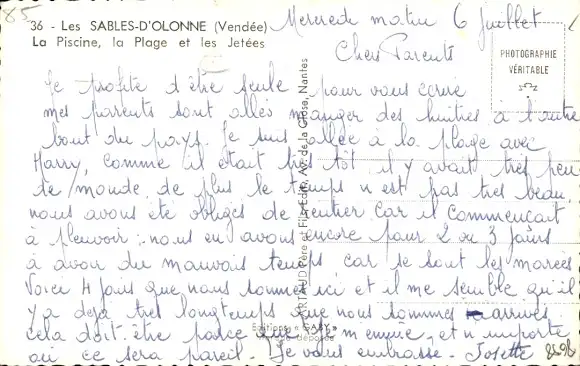 85
36 - Les SABLES-D'OLONNE (Vendée)
La Piscine, la Plage et les Jetées
Mercredi matin 6 juillet
Chers Parents
PHOTOGRAPHIE
VÉRITABLE
Je profite d'être seule pour vous écrire
mes parents sont allés manger des huitres à l'autre
bout du pays. Je suis allée à la plage avec
Harry, comme il était très tôt il y avait très peu
de monde de plus le temps n'est pas très beau
nous avons été obligés de rentrer car il commençait
à pleuvoir : nous en avons encore pour 2 ou 3 jours
à avoir du mauvais temps car se sont les marées
Voici 4 jours que nous sommes ici et il me semble qu'il
y a déjà très longtemps que nous sommes arrivés
cela doit être parce que je m'ennuie, et n'importe
où ce sera pareil. Je vous embrasse - Josette
8598
ARTAUD Père et Fils, Édit., Av. de la Close, Nantes
Editions « GABY »
déposée